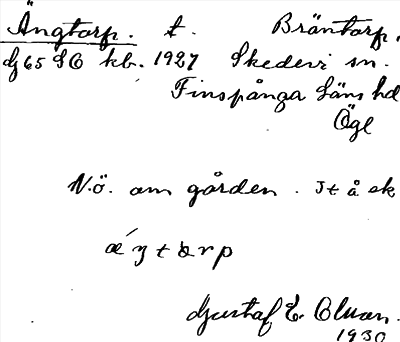 Ängtorp. t. Bräntorp,
dj 65 SO kb. 1927 Skedevi sn.
Finspånga Läns hd
Ögl
N.ö. om gården. It å ek
ǽŋtɒrp
Gustaf E. Olson.
1930